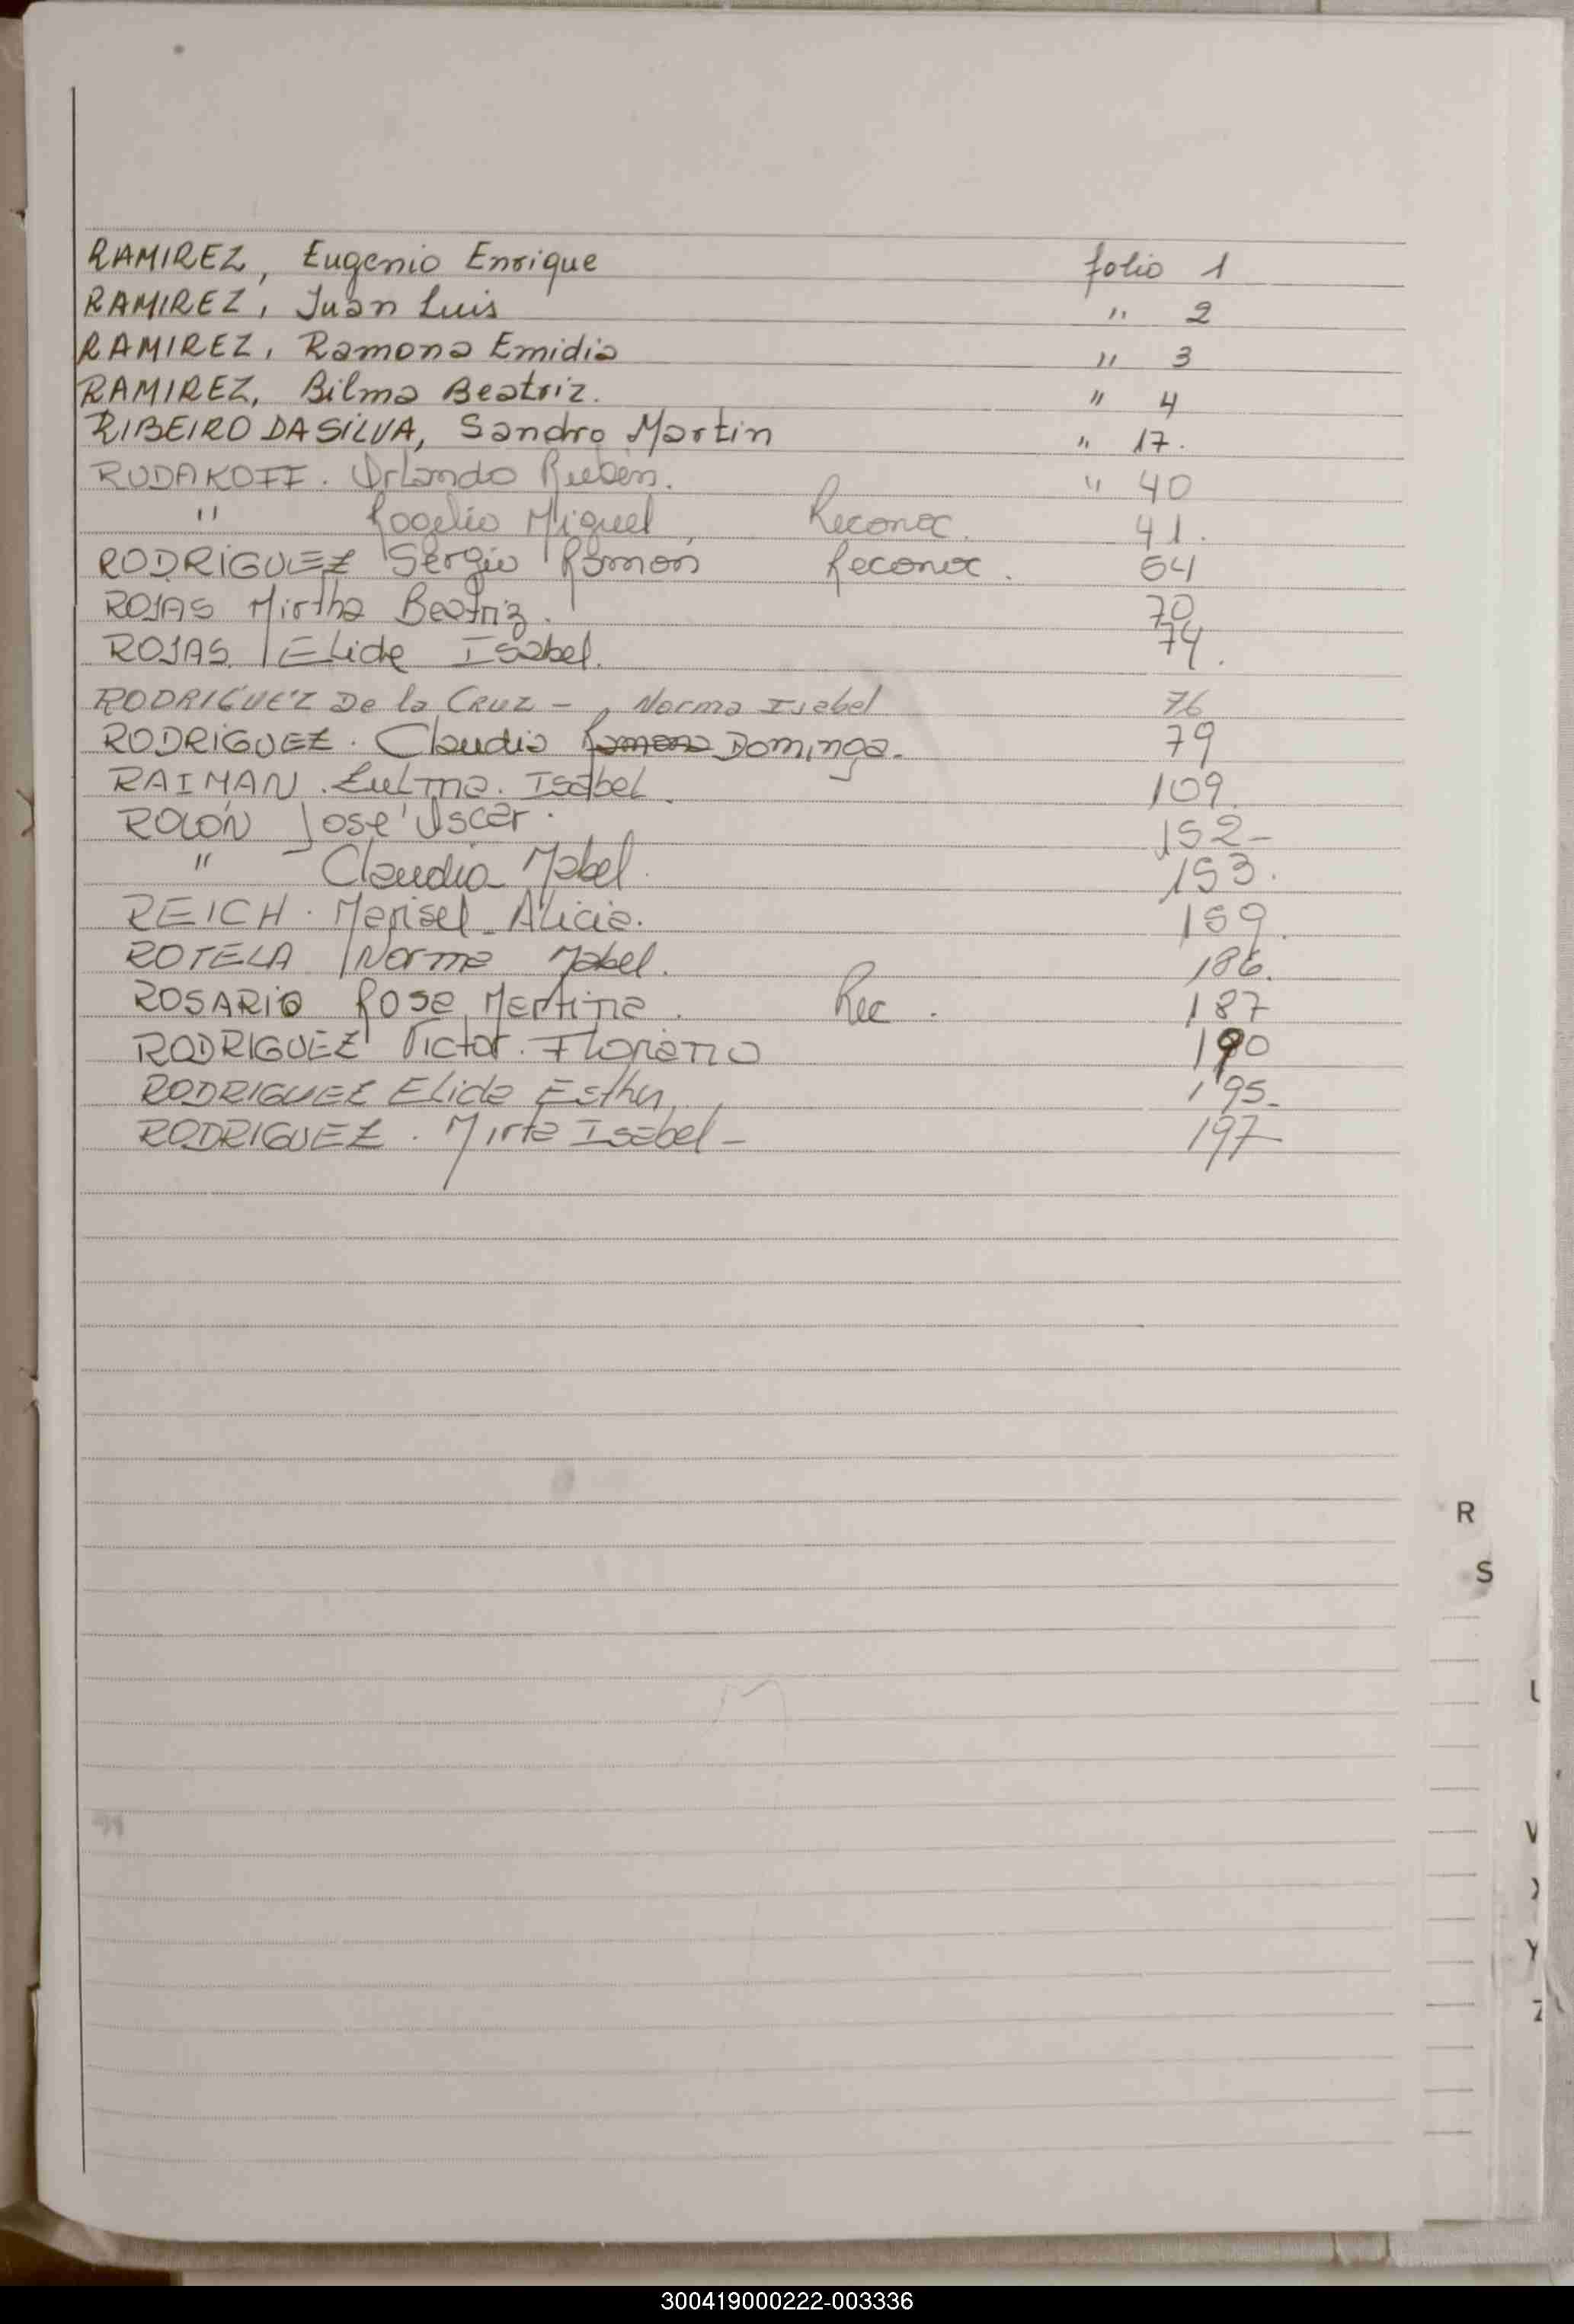 RAMIREZ, Eugenio Enrique folio 1
RAMIREZ, Juan Luis " 2
RAMIREZ, Ramona Emidia " 3
RAMIREZ, Bilma Beatriz. " 4
RIBEIRO DA SILVA, Sandro Martin " 17.
RUDAKOFF. Orlando Ruben. " 40
" Rogelio Miguel, Reconoc. 41.
RODRIGUEZ Sergio Ramon Reconoc. 64
ROJAS Mirtha Beatriz. 70
ROJAS Elide Isabel. 74.
RODRIGUEZ De la CRUZ - , Norma Isabel 76
RODRIGUEZ. Claudia Ramona Dominga. 79
RAIMAN. Isabel. 109.
ROLÓN José Oscar. 152-
" Claudia Mabel. 153.
REICH. Marisel Alicia. 159.
ROTELA Norma Mabel. 186.
ROSARIO Rosa Martina. Rec. 187
RODRIGUEZ Victor. 190
RODRIGUEZ Elida Esther, 195-
RODRIGUEZ. Mirta Isabel - 197
R
S
U
V
X
Y
Z
300419000222-003336